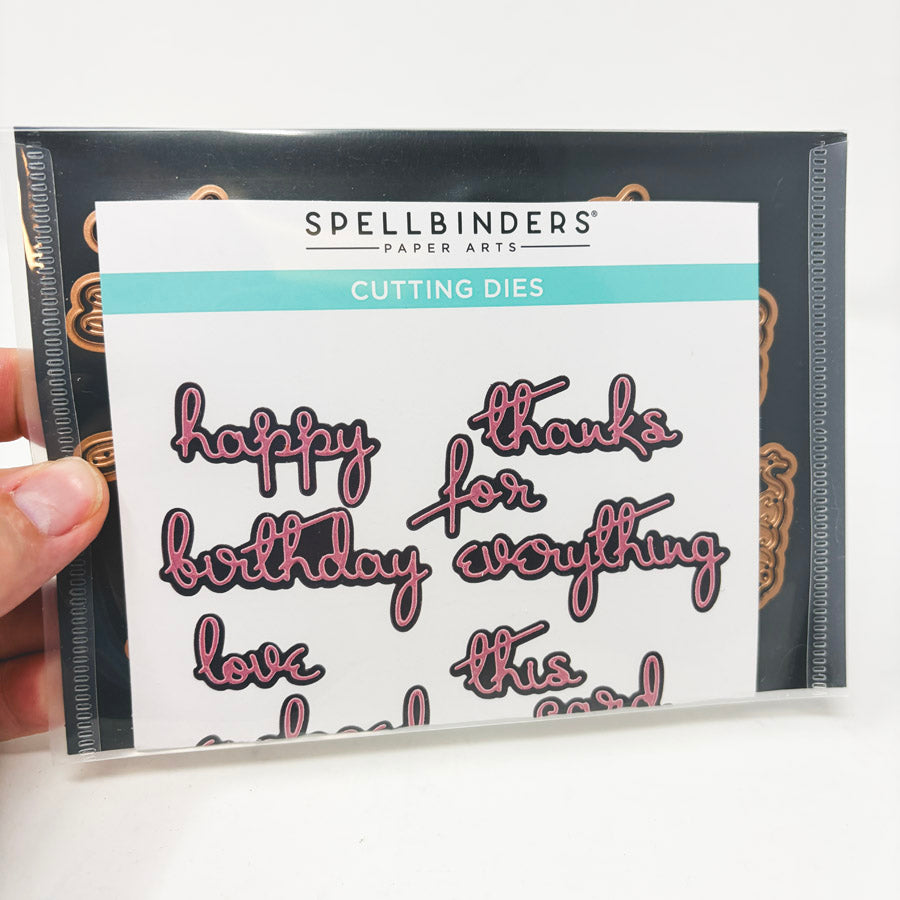 SPELLBINDERS®
PAPER ARTS
CUTTING DIES
happy
birthday
love
thanks
for
everything
this
card